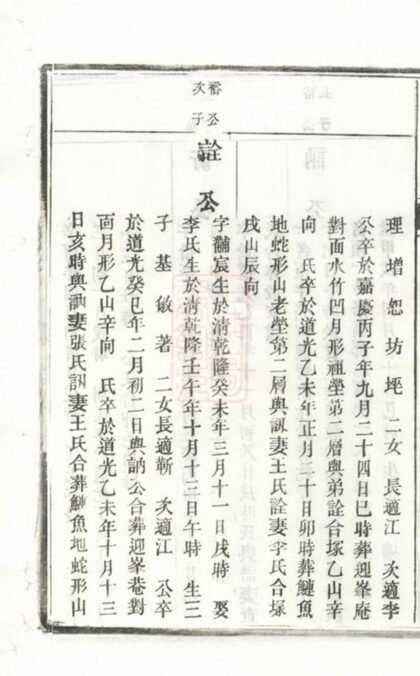 裕公
次子
理增恕坊垤二女長適江次適李
公卒於嘉慶丙子年九月二十四日巳時葬迎峯庵
對面水竹凹月形祖塋第二層與弟詮合塚乙山辛
向氏卒於道光乙未年正月二十日卯時葬鰱魚
地蛇形山老塋第二層與訊妻王氏詮妻李氏合塚
戌山辰向
詮公
字黼宸生於清乾隆癸未年三月十一日戌時娶
李氏生於清乾隆壬午年十月十三日午時生三
子基敏著二女長適靳次適江公卒
於道光癸巳年二月初二日與訥公合葬迎峯菴對
面月形乙山辛向氏卒於道光乙未年十月十三
日亥時與訥妻張氏訊妻王氏合葬鰱魚地蛇形山